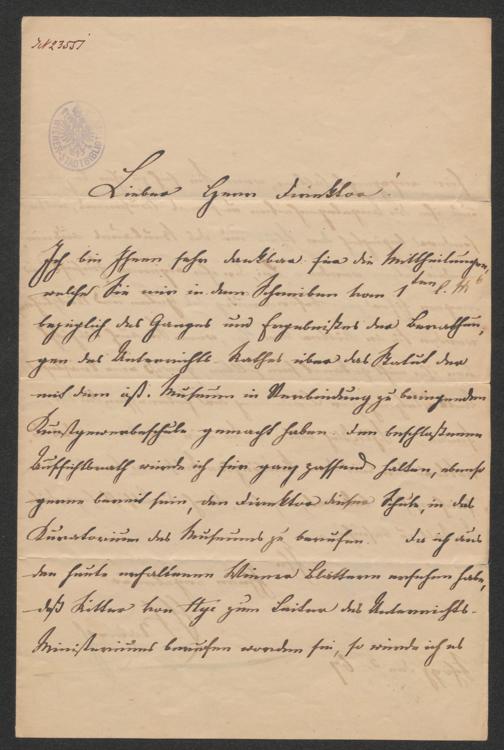 JN 23551
WIENER STADTBIBLIOTHEK
Lieber Herr Direktor!
Ich bin Ihnen sehr dankbar für die Mittheilungen,
welche Sie mir in dem Schreiben vom 1ten l. Mts
bezüglich des Ganges und Ergebnißes der Berathun,
gen des Unterrichts Rathes über das Statut der
mit dem öst. Museum in Verbindung zu bringenden
Kunstgewerbeschule gemacht haben. Den beschlossenen
Aufsichtsrath würde ich für ganz passend halten, ebenso
gerne bereit sein, den Direktor dieser Schule in das
Kuratorium des Museums zu berufen. Da ich aus
den heute erhaltenen Wiener Blättern ersehen habe,
daß Ritter von Hye zum Leiter des Unterrichts-
Ministeriums berufen worden sei, so würde ich es